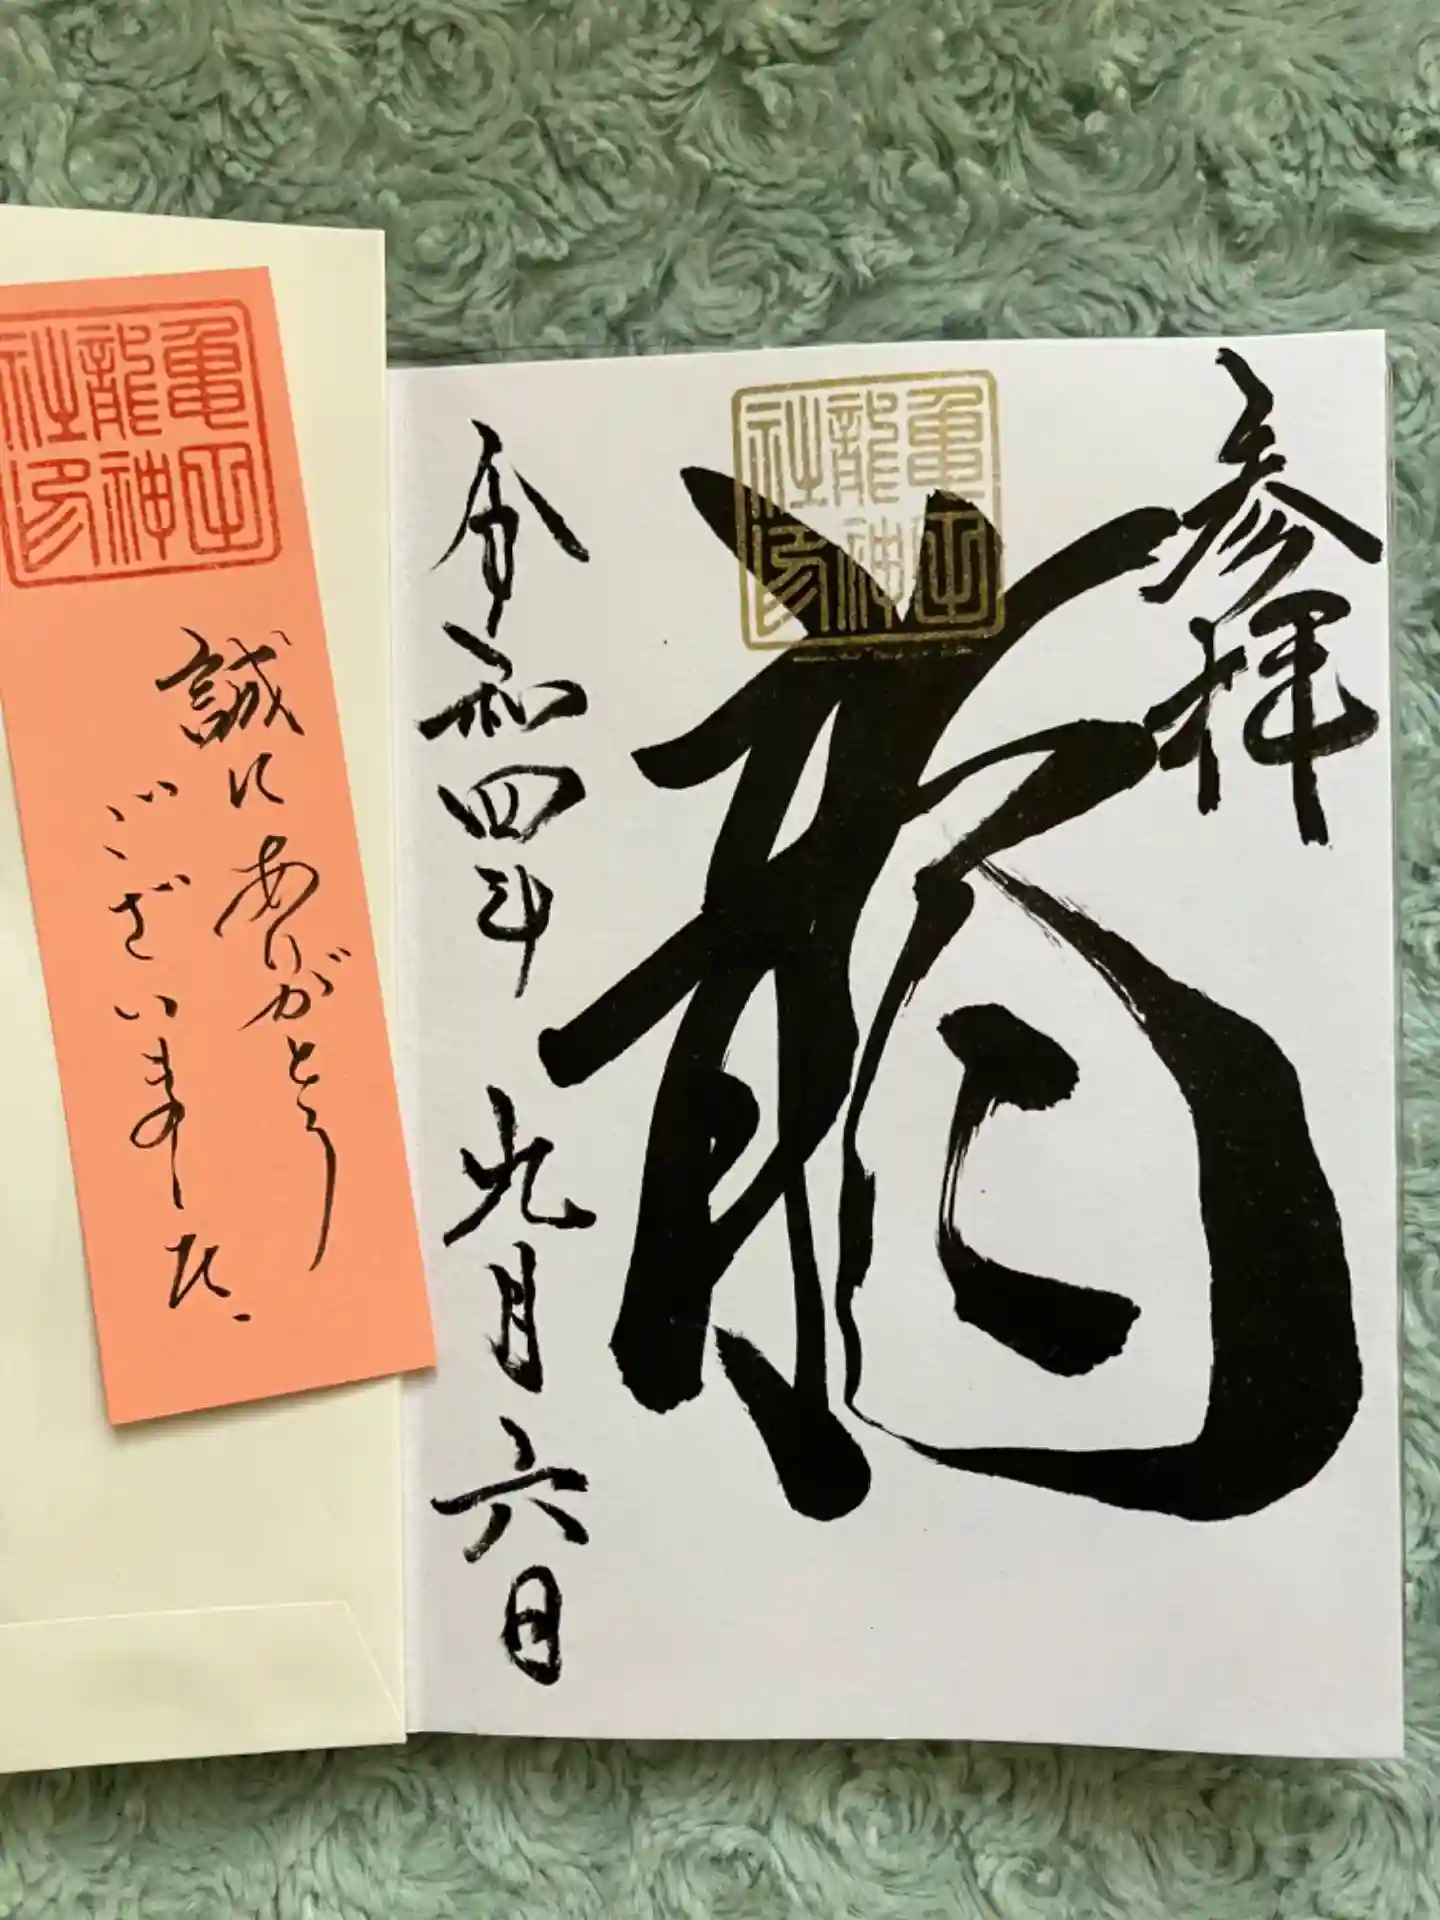 参拝
龍
龍神
社印
令和四年 九月六日
亀
龍神
社印
誠にありがとう
ございました。